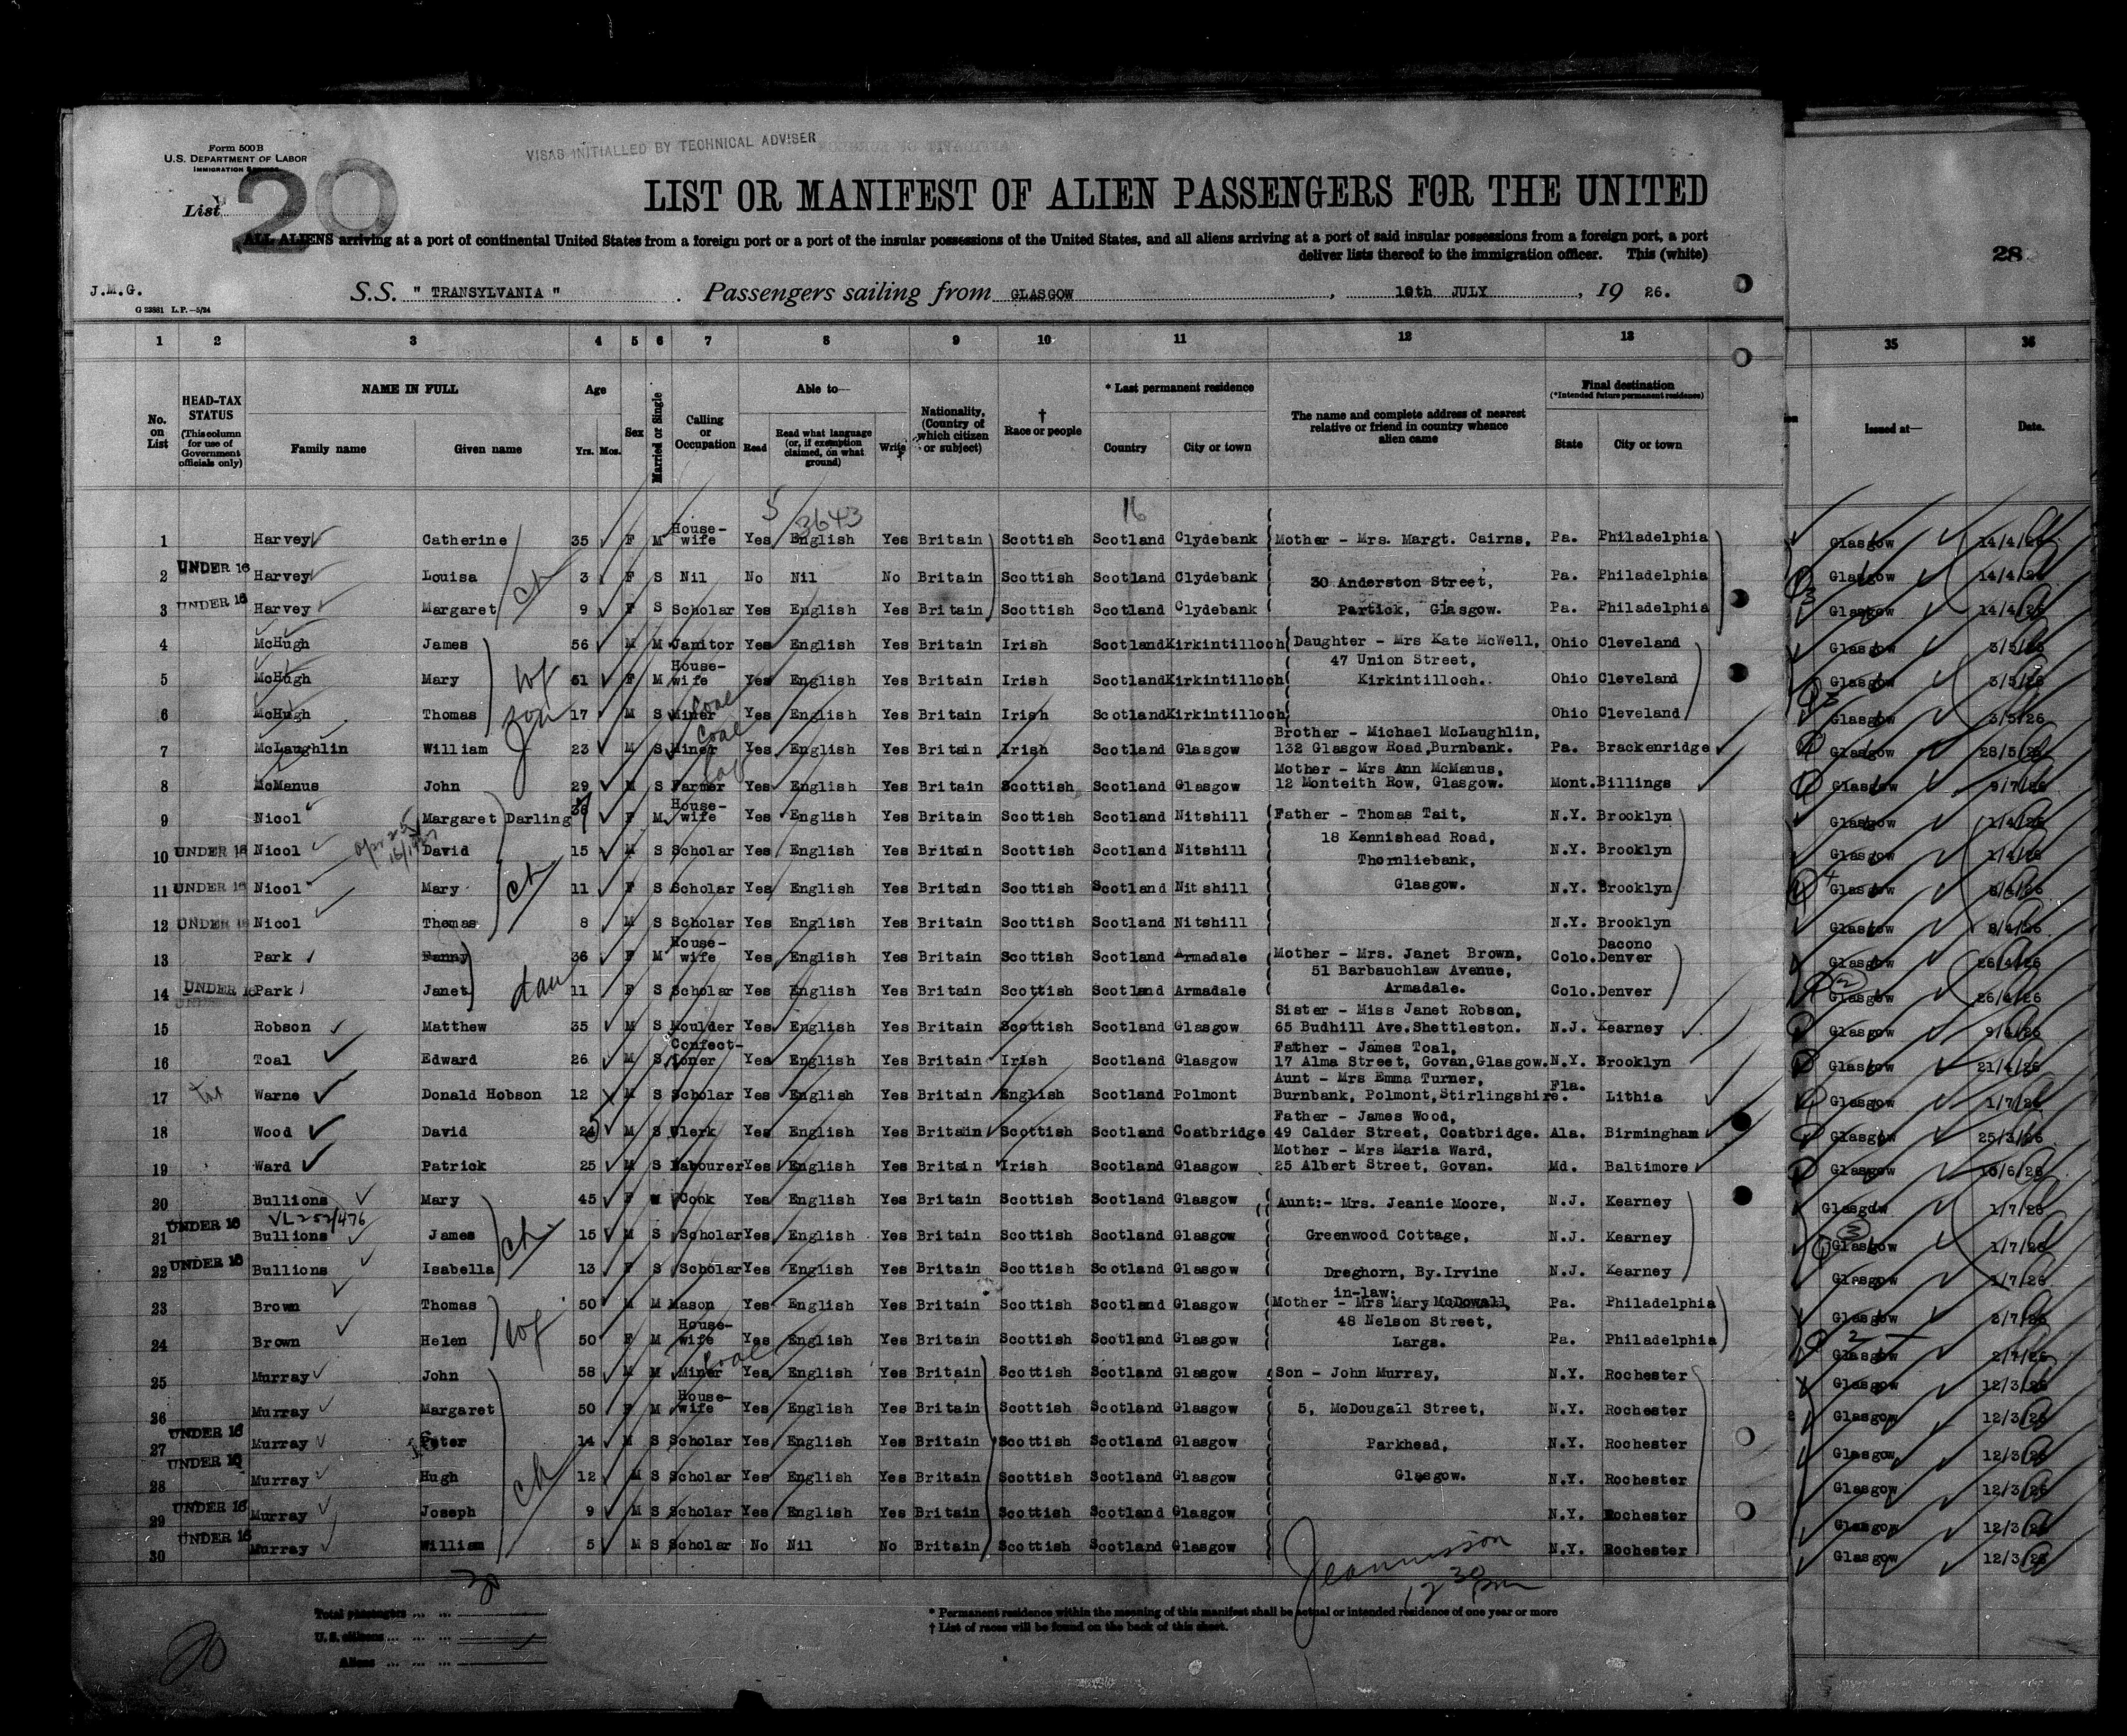 Form 500B
U.S. DEPARTMENT OF LABOR
IMMIGRATION
VISAS INITIALLED BY TECHNICAL ADVISER
List 20
LIST OR MANIFEST OF ALIEN PASSENGERS FOR THE UNITED
ALL ALIENS arriving at a port of continental United States from a foreign port or a port of the insular possessions of the United States, and all aliens arriving at a port of said insular possessions from a foreign port, a port
deliver lists thereof to the immigration officer. This (white)
28
J.M.G.
G 23881 L.P.—5/24
S.S. " TRANSYLVANIA " . Passengers sailing from GLASGOW , 10th JULY , 19 26.
1 2 3 4 5 6 7 8 9 10 11 12 13 35 36
No. on List
HEAD-TAX STATUS (This column for use of Government officials only)
NAME IN FULL
Family name Given name
Age Yrs. Mos.
Sex
Married or Single
Calling or Occupation
Able to—
Read Read what language (or, if exemption claimed, on what ground) Write
Nationality, (Country of which citizen or subject)
† Race or people
* Last permanent residence
Country City or town
The name and complete address of nearest relative or friend in country whence alien came
Final destination (*Intended future permanent residence)
State City or town
Issued at— Date.
5 3643 16
1 Harvey Catherine 35 F M House-wife Yes English Yes Britain Scottish Scotland Clydebank Mother - Mrs. Margt. Cairns, Pa. Philadelphia Glasgow 14/4/26
2 UNDER 16 Harvey Louisa 3 F S Nil No Nil No Britain Scottish Scotland Clydebank 30 Anderston Street, Pa. Philadelphia Glasgow 14/4/26
3 UNDER 16 Harvey Margaret 9 F S Scholar Yes English Yes Britain Scottish Scotland Clydebank Partick, Glasgow. Pa. Philadelphia Glasgow 14/4/26
4 McHugh James 56 M M Janitor Yes English Yes Britain Irish Scotland Kirkintilloch Daughter - Mrs Kate McWell, Ohio Cleveland Glasgow 3/5/26
47 Union Street,
5 McHugh Mary 51 F M House-wife Yes English Yes Britain Irish Scotland Kirkintilloch Kirkintilloch. Ohio Cleveland Glasgow 3/5/26
6 McHugh Thomas 17 M S Miner Coal Yes English Yes Britain Irish Scotland Kirkintilloch Ohio Cleveland Glasgow 3/5/26
Brother - Michael McLaughlin,
7 McLaughlin William 23 M S Miner Coal Yes English Yes Britain Irish Scotland Glasgow 132 Glasgow Road, Burnbank. Pa. Brackenridge Glasgow 28/5/26
Mother - Mrs Ann McManus,
8 McManus John 29 M S Farmer Yes English Yes Britain Scottish Scotland Glasgow 12 Monteith Row, Glasgow. Mont. Billings Glasgow 9/7/26
9 Nicol Margaret Darling F M House-wife Yes English Yes Britain Scottish Scotland Nitshill Father - Thomas Tait, N.Y. Brooklyn Glasgow 1/4/26
18 Kennishead Road,
10 UNDER 16 Nicol David 15 M S Scholar Yes English Yes Britain Scottish Scotland Nitshill N.Y. Brooklyn Glasgow 1/4/26
Thornliebank,
11 UNDER 16 Nicol Mary 11 F S Scholar Yes English Yes Britain Scottish Scotland Nitshill Glasgow. N.Y. Brooklyn Glasgow
12 UNDER 16 Nicol Thomas 8 M S Scholar Yes English Yes Britain Scottish Scotland Nitshill N.Y. Brooklyn Glasgow
13 Park Fanny 36 F M House-wife Yes English Yes Britain Scottish Scotland Armadale Mother - Mrs. Janet Brown, Colo. Dacono Denver Glasgow 26/4/26
51 Barbauchlaw Avenue,
14 UNDER 16 Park Janet 11 F S Scholar Yes English Yes Britain Scottish Scotland Armadale Armadale. Colo. Denver Glasgow 26/4/26
Sister - Miss Janet Robson,
15 Robson Matthew 35 M S Moulder Yes English Yes Britain Scottish Scotland Glasgow 65 Budhill Ave. Shettleston. N.J. Kearney Glasgow
Father - James Toal,
16 Toal Edward 26 M S Confect-ioner Yes English Yes Britain Irish Scotland Glasgow 17 Alma Street, Govan, Glasgow. N.Y. Brooklyn Glasgow 21/4/26
Aunt - Mrs Emma Turner,
17 Warne Donald Hobson 12 M S Scholar Yes English Yes Britain English Scotland Polmont Burnbank, Polmont, Stirlingshire. Fla. Lithia Glasgow 1/7/26
Father - James Wood,
18 Wood David M S Clerk Yes English Yes Britain Scottish Scotland Coatbridge 49 Calder Street, Coatbridge. Ala. Birmingham Glasgow 25/3/26
Mother - Mrs Maria Ward,
19 Ward Patrick 25 M S Labourer Yes English Yes Britain Irish Scotland Glasgow 25 Albert Street, Govan. Md. Baltimore Glasgow
20 Bullions Mary 45 F Cook Yes English Yes Britain Scottish Scotland Glasgow Aunt:- Mrs. Jeanie Moore, N.J. Kearney Glasgow 1/7/26
VL 252/476
21 UNDER 16 Bullions James 15 M S Scholar Yes English Yes Britain Scottish Scotland Glasgow Greenwood Cottage, N.J. Kearney Glasgow 1/7/26
22 UNDER 16 Bullions Isabella 13 F S Scholar Yes English Yes Britain Scottish Scotland Glasgow Dreghorn, By. Irvine N.J. Kearney Glasgow 1/7/26
in-law:
23 Brown Thomas 50 M M Mason Yes English Yes Britain Scottish Scotland Glasgow Mother - Mrs Mary McDowall, Pa. Philadelphia Glasgow
48 Nelson Street,
24 Brown Helen 50 F M House-wife Yes English Yes Britain Scottish Scotland Glasgow Largs. Pa. Philadelphia Glasgow 2/7/26
25 Murray John 58 M M Miner Coal Yes English Yes Britain Scottish Scotland Glasgow Son - John Murray, N.Y. Rochester Glasgow 12/3/26
26 Murray Margaret 50 F M House-wife Yes English Yes Britain Scottish Scotland Glasgow 5, McDougall Street, N.Y. Rochester Glasgow 12/3/26
27 UNDER 16 Murray Peter 14 M S Scholar Yes English Yes Britain Scottish Scotland Glasgow Parkhead, N.Y. Rochester Glasgow 12/3/26
28 UNDER 16 Murray Hugh 12 M S Scholar Yes English Yes Britain Scottish Scotland Glasgow Glasgow. N.Y. Rochester Glasgow 12/3/26
29 UNDER 16 Murray Joseph 9 M S Scholar Yes English Yes Britain Scottish Scotland Glasgow N.Y. Rochester Glasgow 12/3/26
30 UNDER 16 Murray William 5 M S Scholar No Nil No Britain Scottish Scotland Glasgow N.Y. Rochester Glasgow 12/3/26
30
12 30 pm
Total passengers ... ...
U.S. citizens ... ... ...
Aliens ... ... ...
20
* Permanent residence within the meaning of this manifest shall be actual or intended residence of one year or more
† List of races will be found on the back of this sheet.